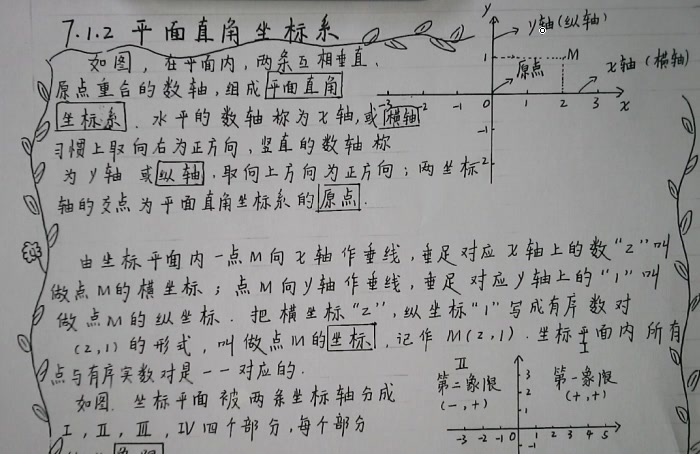 7.1.2 平面直角坐标系
如图，在平面内，两条互相垂直、
原点重合的数轴，组成平面直角
坐标系．水平的数轴称为x轴，或横轴
习惯上取向右为正方向，竖直的数轴称
为y轴 或纵轴，取向上方向为正方向；两坐标
轴的交点为平面直角坐标系的原点．
y
y轴(纵轴)
1
M
原点
x轴(横轴)
-3 -2 -1 0 1 2 3 x
-1
-2
由坐标平面内一点M向x轴作垂线，垂足对应x轴上的数“2”叫
做点M的横坐标；点M向y轴作垂线，垂足对应y轴上的“1”叫
做点M的纵坐标．把横坐标“2”，纵坐标“1”写成有序数对
(2,1)的形式，叫做点M的坐标，记作M(2,1)．坐标平面内所有
点与有序实数对是一一对应的．
如图．坐标平面被两条坐标轴分成
I，II，III，IV四个部分，每个部分
II
第二象限
(-,+)
第一象限
(+,+)
3
2
1
-3 -2 -1 0 1 2 3 4 5
-1